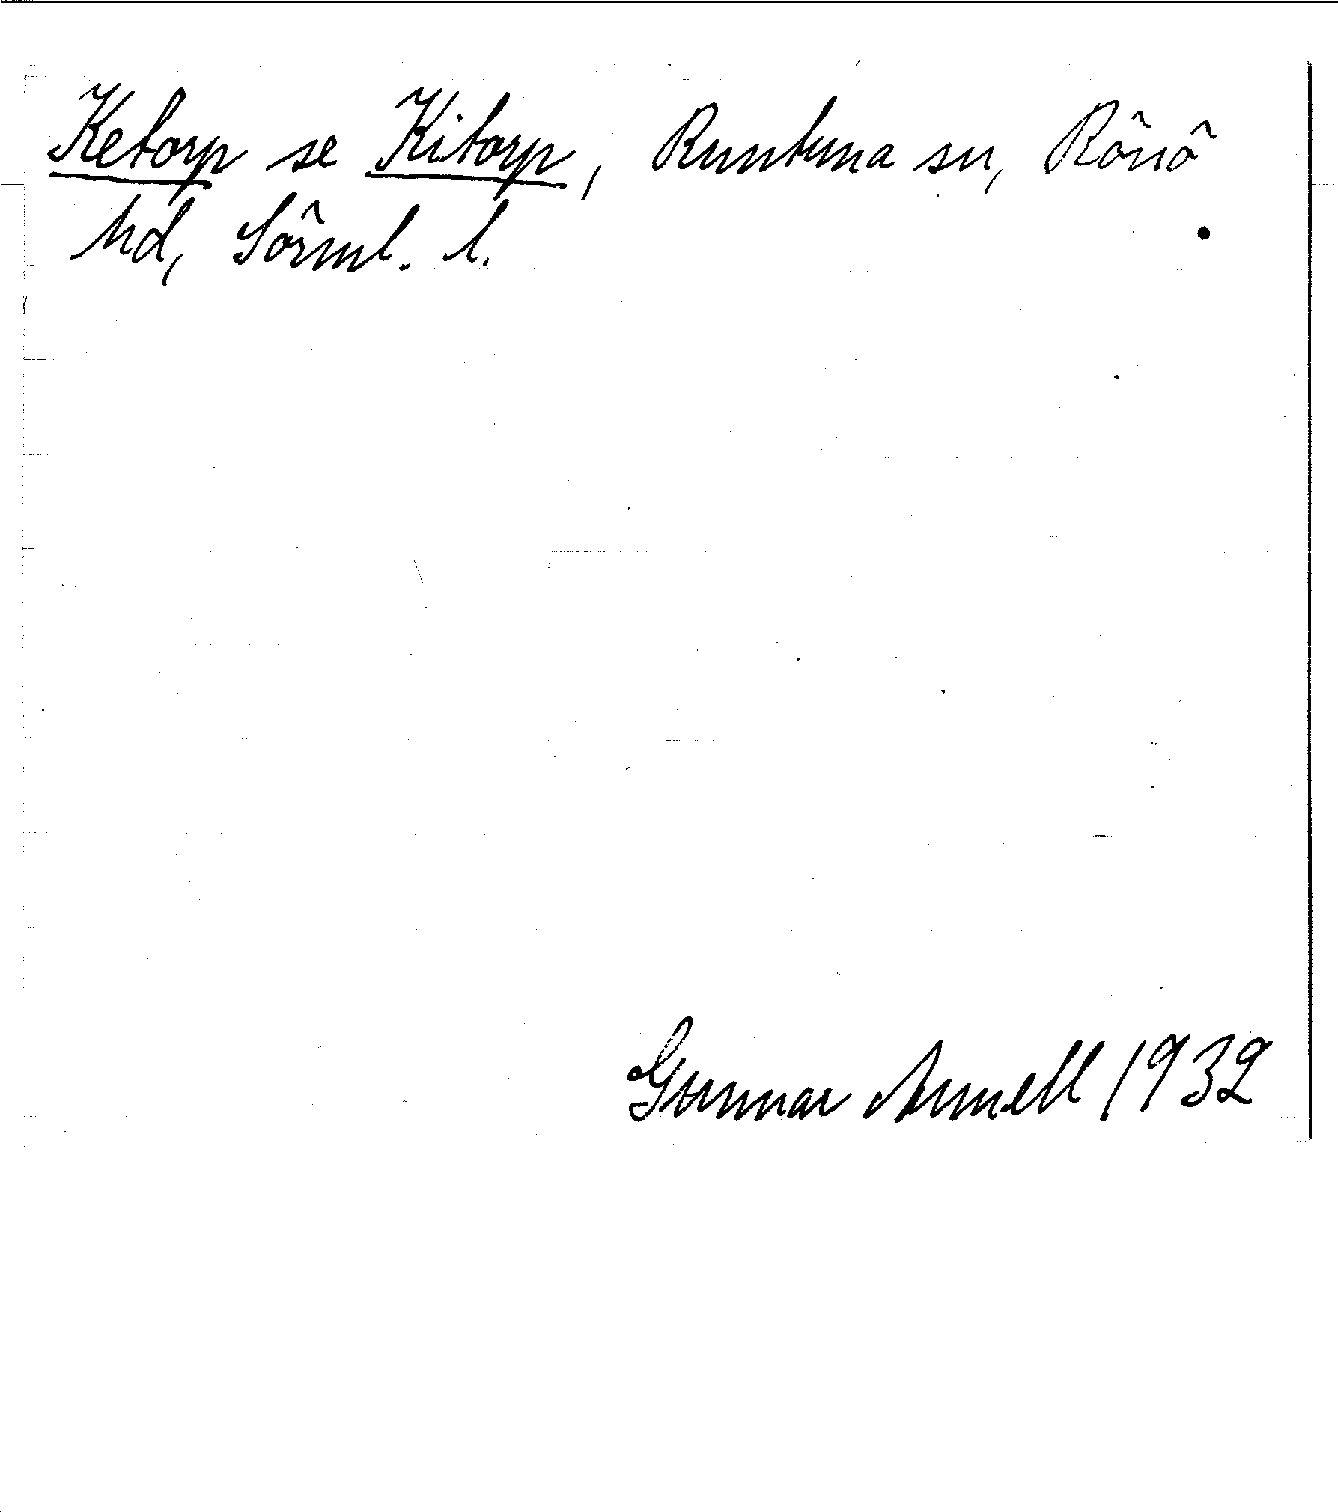 Ketorp se Kitorp, Runtuna sn, Rönö
hd, Sörml. l.
Gunnar Annell 1932